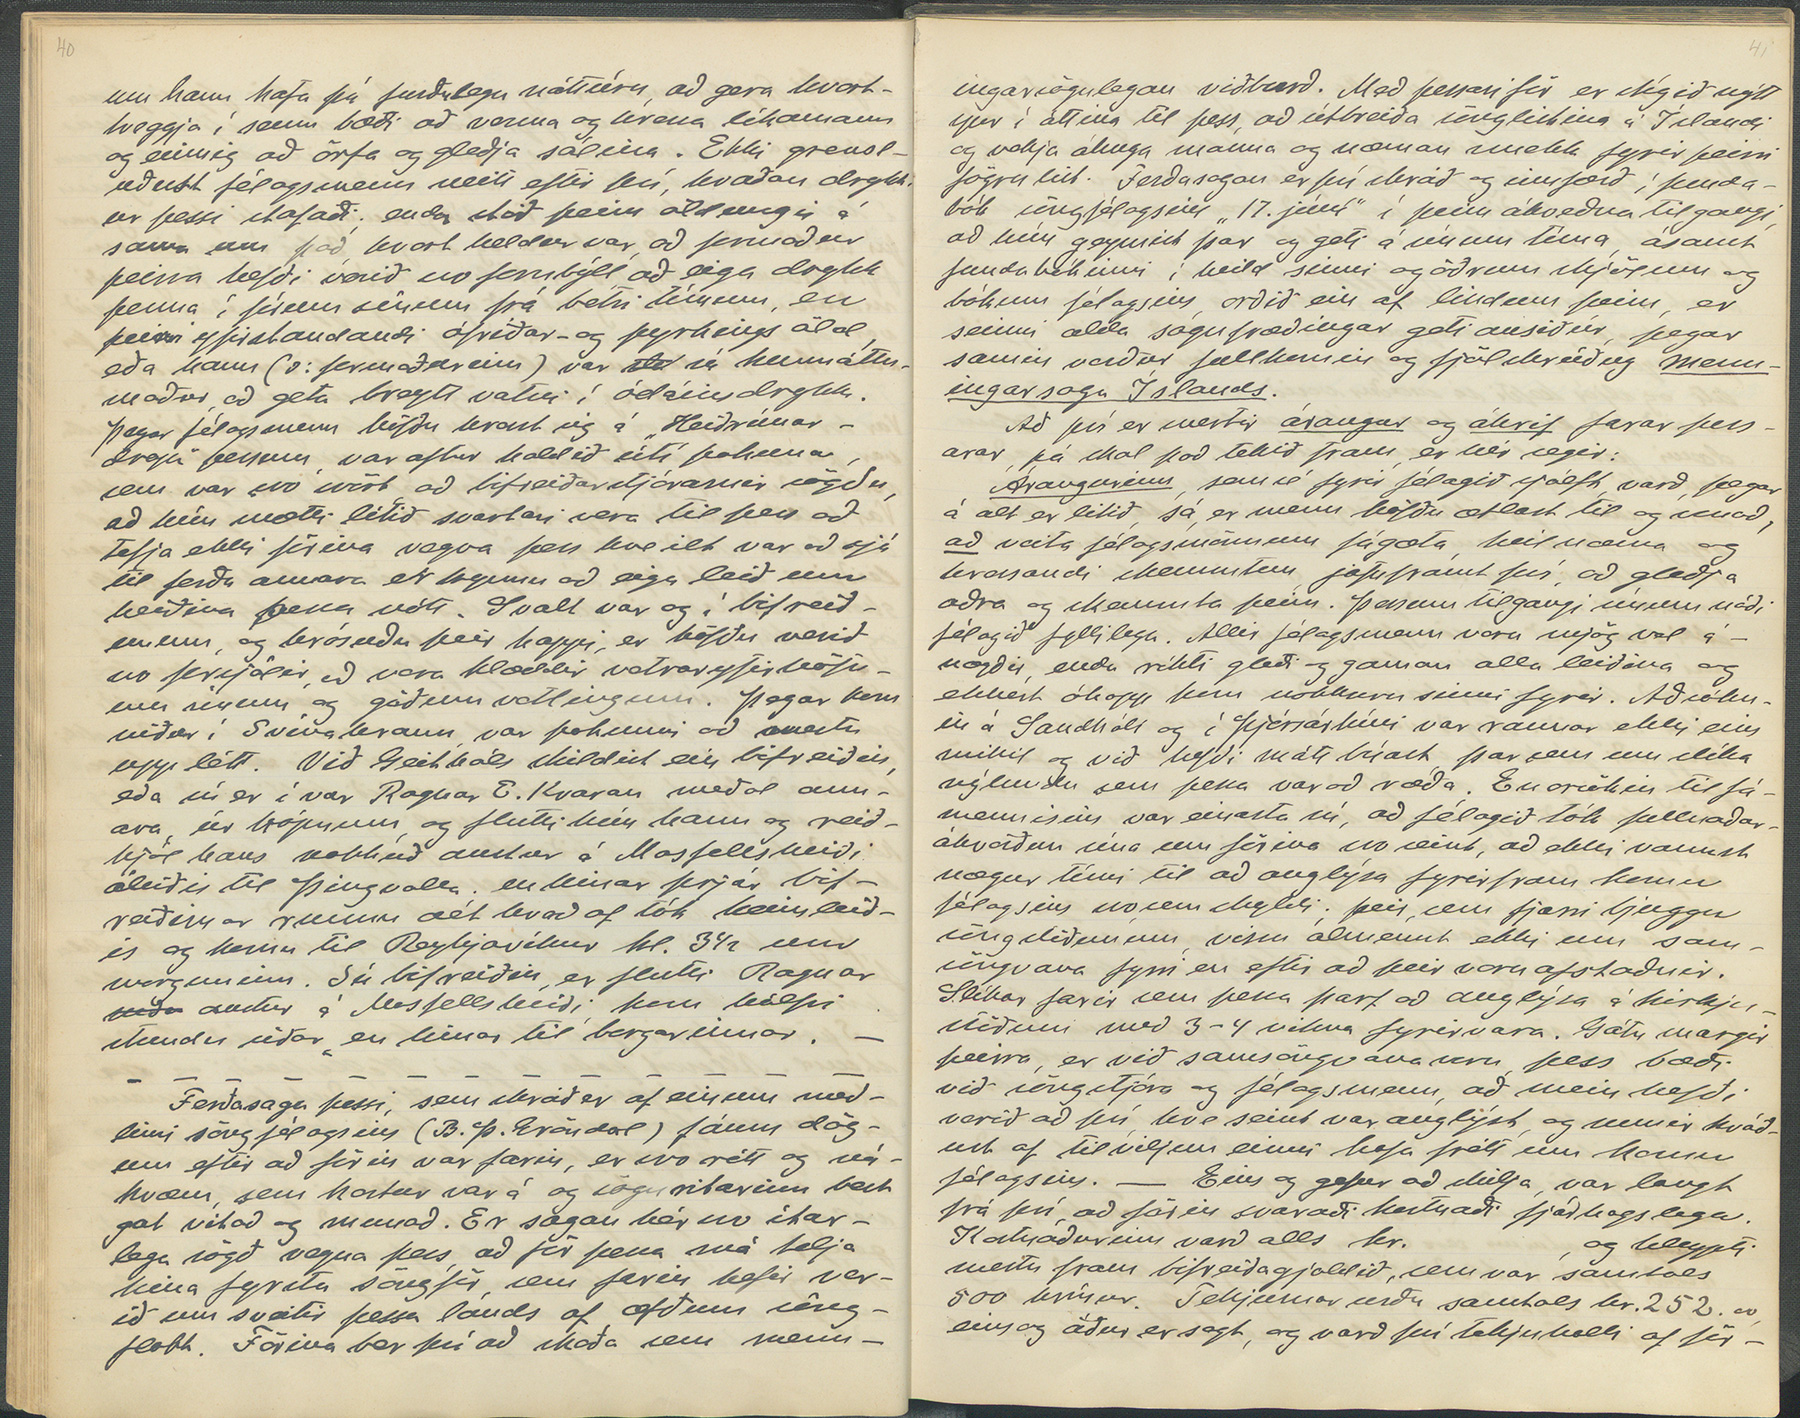 40
um hann hafa þá furðulegu náttúru, að gera hvort-
tveggja í senn bæði að verma og hressa líkamann
og einnig að örfa og gleðja sálina. Ekki grensl-
uðust félagsmenn neitt eftir því, hvaðan drykk-
ur þessi stafaði, enda stóð þeim öldungis á
sama um það, hvort heldur var, að formaður
þeirra hefði verið svo fornbýll að eiga drykk
þenna í fórum sínum frá betri tímum, en
þeirri yfirstandandi ófriðar- og þyrkings öld,
eða hann (ɔ: formaðurinn) var sá kunnáttu-
maður, að geta breytt vatni í ódáinsdrykk.
Þegar félagsmenn höfðu hrest sig á „Heiðrúnar-
dreja" þessum, var aftur haldið útí þokuna,
sem var svo svört, að bifreiðarstjórarnir sögðu,
að hún mætti lítið svartari vera til þess að
tefja ekki förina vegna þess hve ilt var að sjá
til ferða annara er kynnu að eiga leið um
heiðina þessa nótt. Svalt var og í bifreið-
unum, og hrósuðu þeir happi, er höfðu verið
svo forsjálir, að vera klæddir vetraryfirhöfn-
um sínum og góðum vetlingum. Þegar kom
niður í Svínahraun var þokunni að mestu
upp létt. Við Geitháls skildist ein bifreiðin,
eða sú er í var Ragnar E. Kvaran meðal ann-
ara, úr hópnum, og flutti hún hann og reið-
hjól hans nokkuð austur á Mosfellsheiði
áleiðis til Þingvalla, en hinar þrjár bif-
reiðirnar runnu rét hvað af tók heimleið-
is og komu til Reykjavíkur kl. 3½ um
morguninn. Sú bifreiðin, er flutti Ragnar
austur á Mosfellsheiði, kom hálfri
stundu síðar en hinar til borgarinnar. —
Ferðasaga þessi, sem skráð er af einum með-
limi söngfélagsins (B. Þ. Gröndal) fáum dög-
um eftir að förin var farin, er svo rétt og ná-
kvæm, sem kostur var á og söguritarinn best
gat vitað og munað. Er sagan hér svo ítar-
lega sögð vegna þess, að för þessa má telja
hina fyrstu söngför, sem farin hefir ver-
ið um sveitir þessa lands af æfðum söng-
flokk. Förina ber því að skoða sem menn-
41
ingarsögulegan viðburð. Með þessari för er stígið nýtt
spor í áttina til þess, að útbreiða sönglistina á Íslandi
og vekja áhuga manna og næman smekk fyrir þeirri
fögru list. Ferðasagan er því skráð og innfærð í funda-
bók söngfélagsins „17. júní" í þeim ákveðna tilgangi,
að hún geymist þar og geti á sínum tíma, ásamt
fundabókinni í heild sinni og öðrum skjölum og
bókum félagsins, orðið ein af lindum þeim, er
seinni alda sagnfræðingar geti ausið úr, þegar
samin verður fullkomin og fjölskrúðug menn-
ingarsaga Íslands.
Að því er snertir árangur og áhrif farar þess-
arar, þá skal það tekið fram, er hér segir:
Árangurinn, sem sé fyrir félagið sjálft varð, þegar
á alt er litið, sá, er menn höfðu ætlast til og unað,
að veita félagsmönnum ágæta, heilnæma og
hressandi skemmtun, jafnframt því, að gleðja
aðra og skemmta þeim. Þessum tilgangi sínum náði
félagið fyllilega. Allir félagsmenn voru mjög vel á-
nægðir, enda ríkti gleði og gaman alla leiðina og
ekkert óhapp kom nokkuru sinni fyrir. Aðsókn-
in á Sandhól og í Þjórsártúni var raunar ekki eins
mikil og við hefði mátt búast, þar sem um slíka
nýlundu sem þessa var að ræða. En orsökin til fá-
mennisins var einasta sú, að félagið tók fullnaðar-
ákvörðun sína um förina svo seint, að ekki vannst
nægur tími til að auglýsa fyrirfram komu
félagsins svo sem skyldi; þeir, sem fjarri bjuggu
söngstöðunum, vissu alment ekki um sam-
söngvana fyrri en eftir að þeir voru afstaðnir.
Slíkar farir sem þessa þarf að auglýsa á kirkju-
stöðum með 3-4 vikna fyrirvara. Gátu margir
þeirra, er við samsöngvana voru, þess bæði
við söngstjóra og félagsmenn, að mein hefði
verið að því, hve seint var auglýst, og sumir kváð-
ust af tilviljun einni hafa frétt um komu
félagsins. — Eins og gefur að skilja, var langt
frá því, að förin svaraði kostnaði fjárhagslega.
Kostnaðurinn varð alls kr. , og hleypti
mestu fram bifreiðagjaldið, sem var samtals
500 krónur. Tekjurnar urðu samtals kr. 252.00
eins og áður er sagt, og varð því tekjuhalli af för-